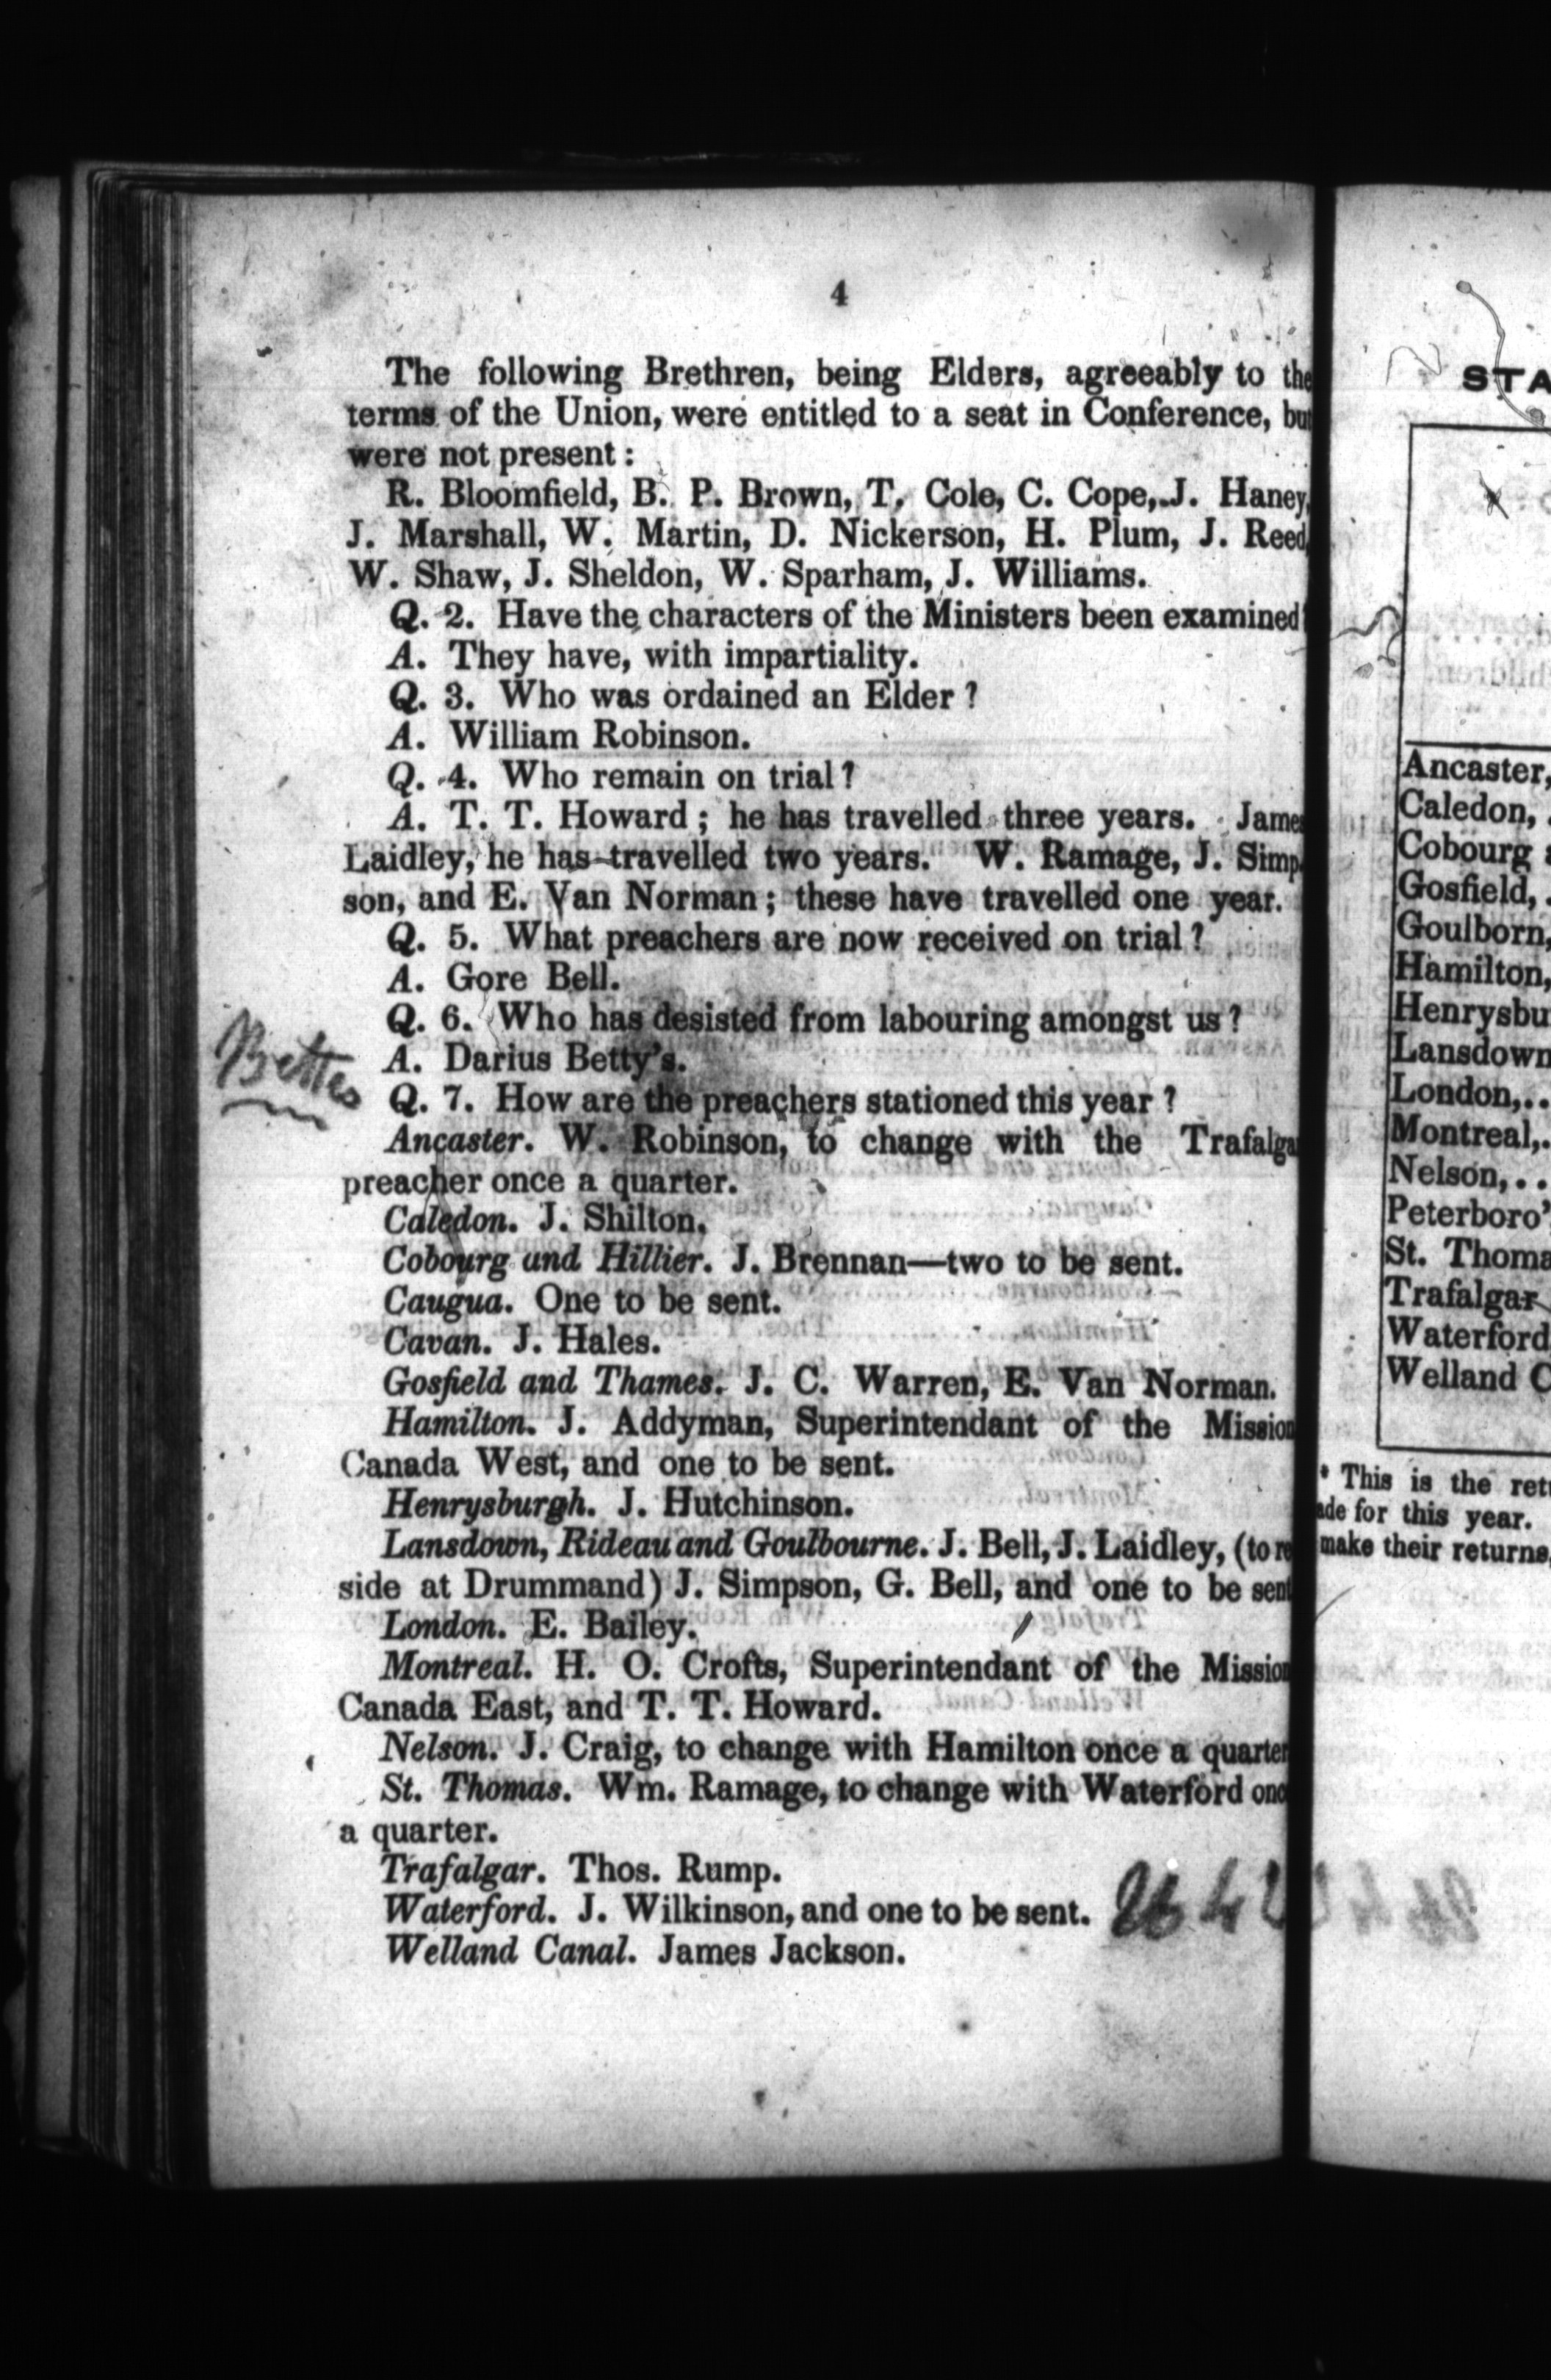 4
The following Brethren, being Elders, agreeably to the
terms of the Union, were entitled to a seat in Conference, but
were not present :
R. Bloomfield, B. P. Brown, T. Cole, C. Cope, J. Haney,
J. Marshall, W. Martin, D. Nickerson, H. Plum, J. Reed,
W. Shaw, J. Sheldon, W. Sparham, J. Williams.
Q. 2. Have the characters of the Ministers been examined?
A. They have, with impartiality.
Q. 3. Who was ordained an Elder ?
A. William Robinson.
Q. 4. Who remain on trial ?
A. T. T. Howard ; he has travelled three years. James
Laidley, he has travelled two years. W. Ramage, J. Simp-
son, and E. Van Norman ; these have travelled one year.
Q. 5. What preachers are now received on trial ?
A. Gore Bell.
Q. 6. Who has desisted from labouring amongst us ?
A. Darius Betty's.
Bettes
Q. 7. How are the preachers stationed this year ?
Ancaster. W. Robinson, to change with the Trafalga
preacher once a quarter.
Caledon. J. Shilton.
Cobourg and Hillier. J. Brennan—two to be sent.
Caugua. One to be sent.
Cavan. J. Hales.
Gosfield and Thames. J. C. Warren, E. Van Norman.
Hamilton. J. Addyman, Superintendant of the Mission
Canada West, and one to be sent.
Henrysburgh. J. Hutchinson.
Lansdown, Rideau and Goulbourne. J. Bell, J. Laidley, (to re
side at Drummand) J. Simpson, G. Bell, and one to be sent
London. E. Bailey.
Montreal. H. O. Crofts, Superintendant of the Mission
Canada East, and T. T. Howard.
Nelson. J. Craig, to change with Hamilton once a quarter
St. Thomas. Wm. Ramage, to change with Waterford onc
a quarter.
Trafalgar. Thos. Rump.
Waterford. J. Wilkinson, and one to be sent.
Welland Canal. James Jackson.
STA
Ancaster,
Caledon, .
Cobourg
Gosfield, .
Goulborn,
Hamilton,
Henrysbu
Lansdown
London,..
Montreal,.
Nelson,..
Peterboro'
St. Thoma
Trafalgar
Waterford
Welland C
* This is the ret
ade for this year.
make their returns,